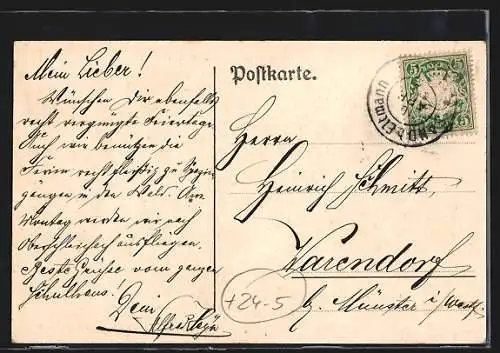 Mein Lieber!
Wünschen Dir ebenfalls
recht vergnügte Feiertage.
Auch wir benützen die
Ferien recht fleißig zu Spazier-
gängen in den Wald. Am
Montag werden wir nach
Oberschleichach ausfliegen.
Beste Grüße vom ganzen
Schulhaus!
Dein
Alfred
Postkarte.
5 5
5
Eltmann
Herrn
Heinrich Schmitz,
Warendorf
b. Münster i/Westf.
+24-5